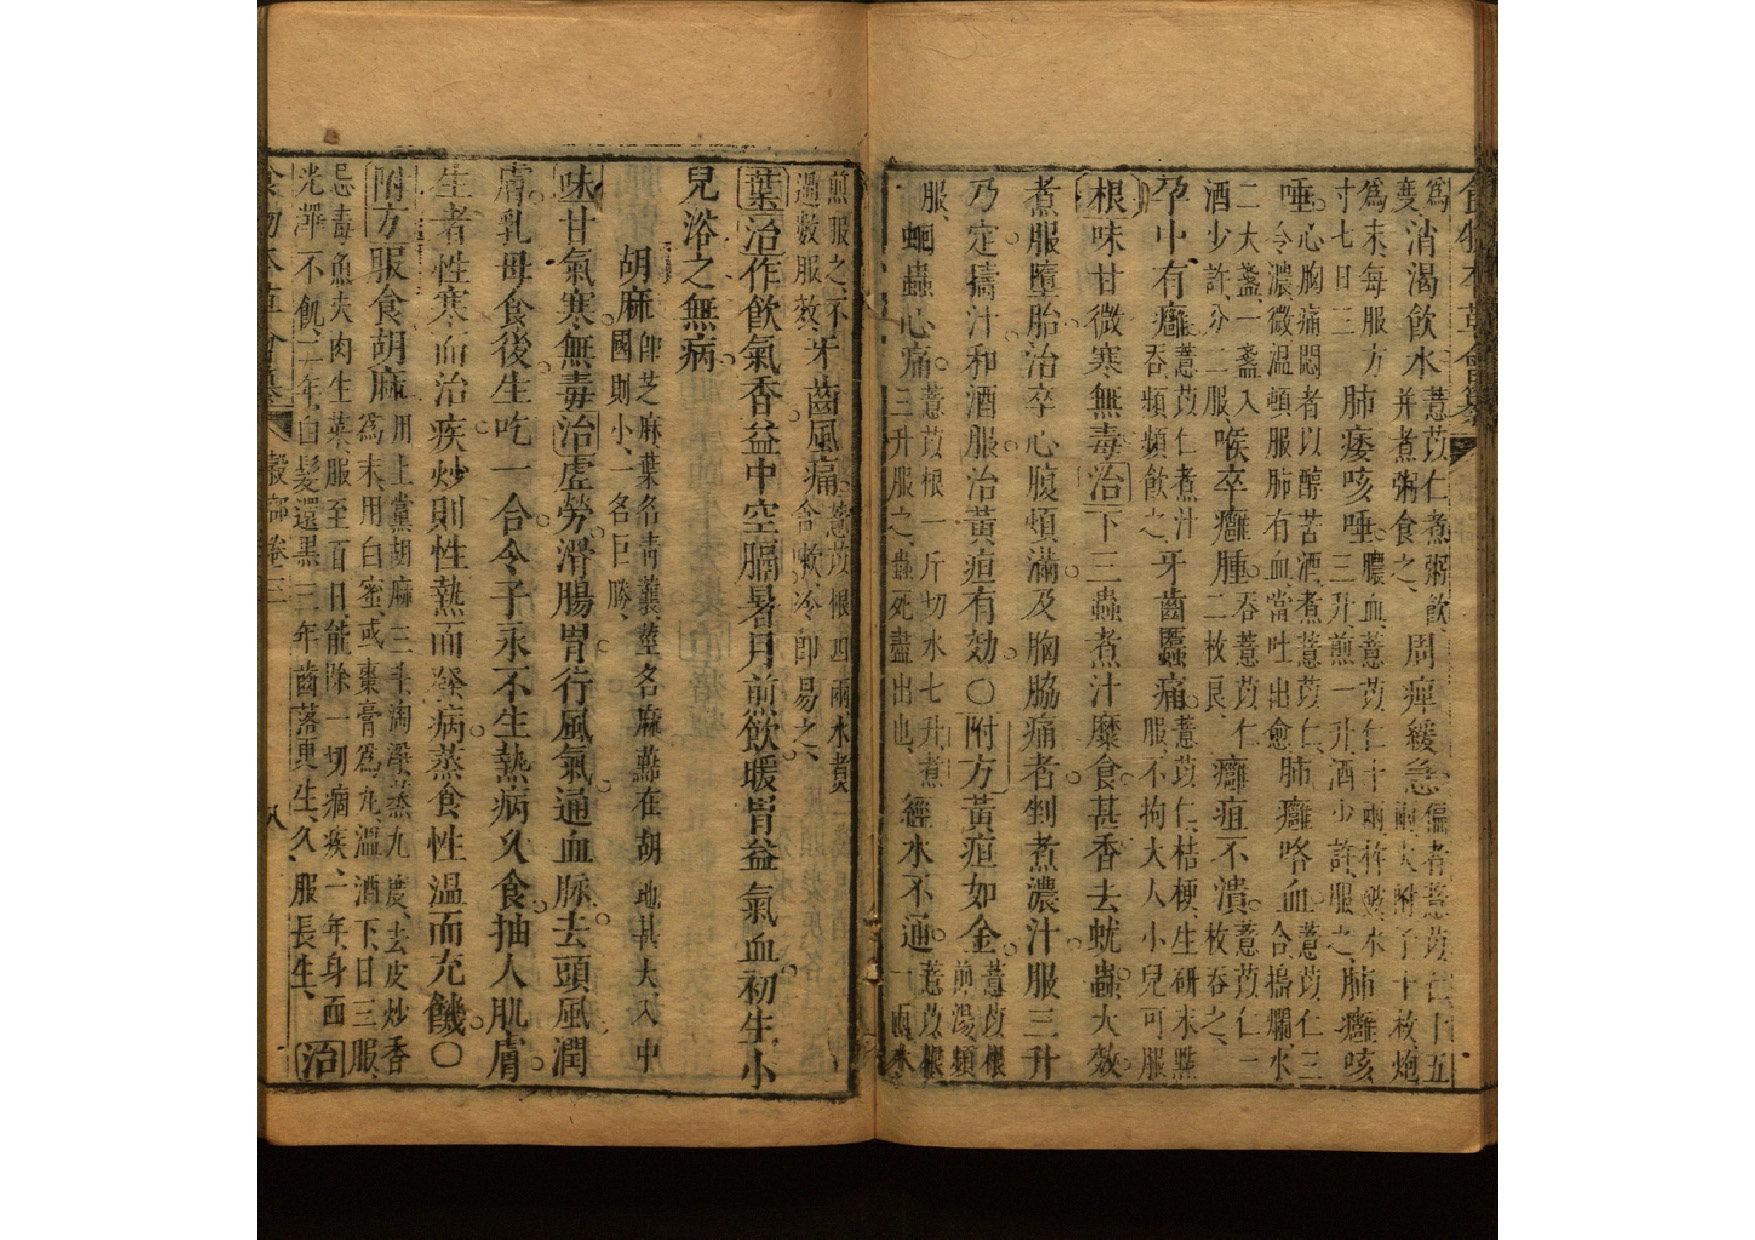 食物本草會纂
為末、消渴飲水。薏苡仁煮粥飲、周痺緩急。偏者薏苡仁十五
度、并煮粥食之、兩大附子十枚、炮
為末、每服方肺痿咳唾。膿血、薏苡仁十兩杵破水肺癰咳
寸七日三三升煎一升、酒少許、服之、
唾。心胸痛悶者以醇苦酒煮薏苡仁、肺癰咯血。薏苡仁三
令濃微溫頓服肺有血當吐出愈、合搗爛、水
二大盞一盞入喉卒癰腫。吞薏苡仁癰疽不潰。薏苡仁一
酒少許、分二服、二枚良、枚吞之、
孕中有癰薏苡仁煮汁牙齒䘌痛。薏苡仁、桔梗、生研末點
吞、頻頻飲之、服、不拘大人小兒可服
根味甘微寒無毒治下三蟲煮汁糜食甚香去蚘蟲大效。
煮服墮胎治卒心腹煩滿及胸脇痛者剉煮濃汁服三升
乃定擣汁和酒服治黃疸有効○附方黃疸如金。薏苡根
煎湯頻
服、蛔蟲心痛。薏苡根一斤切水七升、煮經水不通。薏苡根
三升服之、蟲死盡出也、一兩水
煎服之、不牙齒風痛。薏苡根四兩、水煮
過數服效、含漱、冷即易之、
葉治作飲氣香益中空膈暑月煎飲暖胃益氣血初生小
兒浴之無病
胡麻即芝麻葉名青蘘、莖名麻䕸在胡地甚大、入中
國則小、一名巨勝、
味甘氣寒無毒治虛勞滑腸胃行風氣通血脉去頭風潤
膚乳母食後生吃一合令子永不生熱病久食抽人肌膚
生者性寒而治疾炒則性熱而發病蒸食性溫而充饑○
附方服食胡麻用上黨胡麻三斗淘淨、蒸九度、去皮炒香
為末、用白蜜、或棗膏為丸、溫酒下、日三服、
忌毒魚犬肉生菜、服至百日能除一切痼疾、一年、身面
光澤不飢、二年、白髮還黑、三年齒落更生、久服長生、治
食物本草會纂 穀部卷三 八